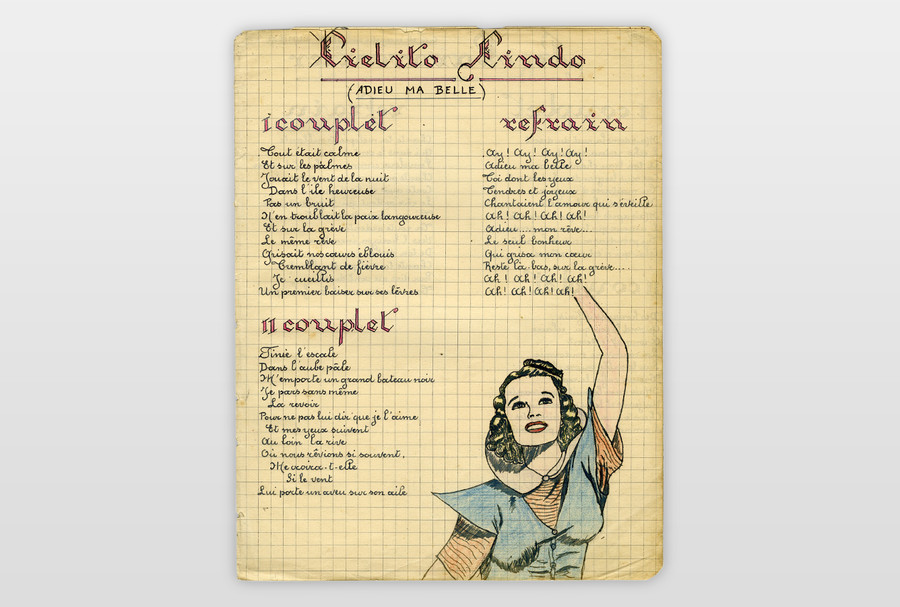 Cielito Lindo
(ADIEU MA BELLE)
I couplet
Tout était calme
Et sur les palmes
Jouait le vent de la nuit
Dans l'île heureuse
Pas un bruit
N'en troublait la paix langoureuse
Et sur la grève
Le même rêve
Grisait nos cœurs éblouis
Tremblant de fièvre
Je cueillis
Un premier baiser sur ses lèvres
II couplet
Finie l'escale
Dans l'aube pâle
M'emporte un grand bateau noir
Je pars sans même
La revoir
Pour ne pas lui dir' que je l'aime
Et mes yeux suivent
Au loin la rive
Où nous rêvions si souvent,
Me croira-t-elle
Si le vent
Lui porte un aveu sur son aile
refrain
Ay! Ay! Ay! Ay!
Adieu ma belle
Toi dont les yeux
Tendres et joyeux
Chantaient l'amour qui s'éveille
Ah! Ah! Ah! Ah!
Adieu.... mon rêve...
Le seul bonheur
Qui grisa mon cœur
Reste là-bas, sur la grève....
Ah! Ah! Ah! Ah!
Ah! Ah! Ah! Ah!